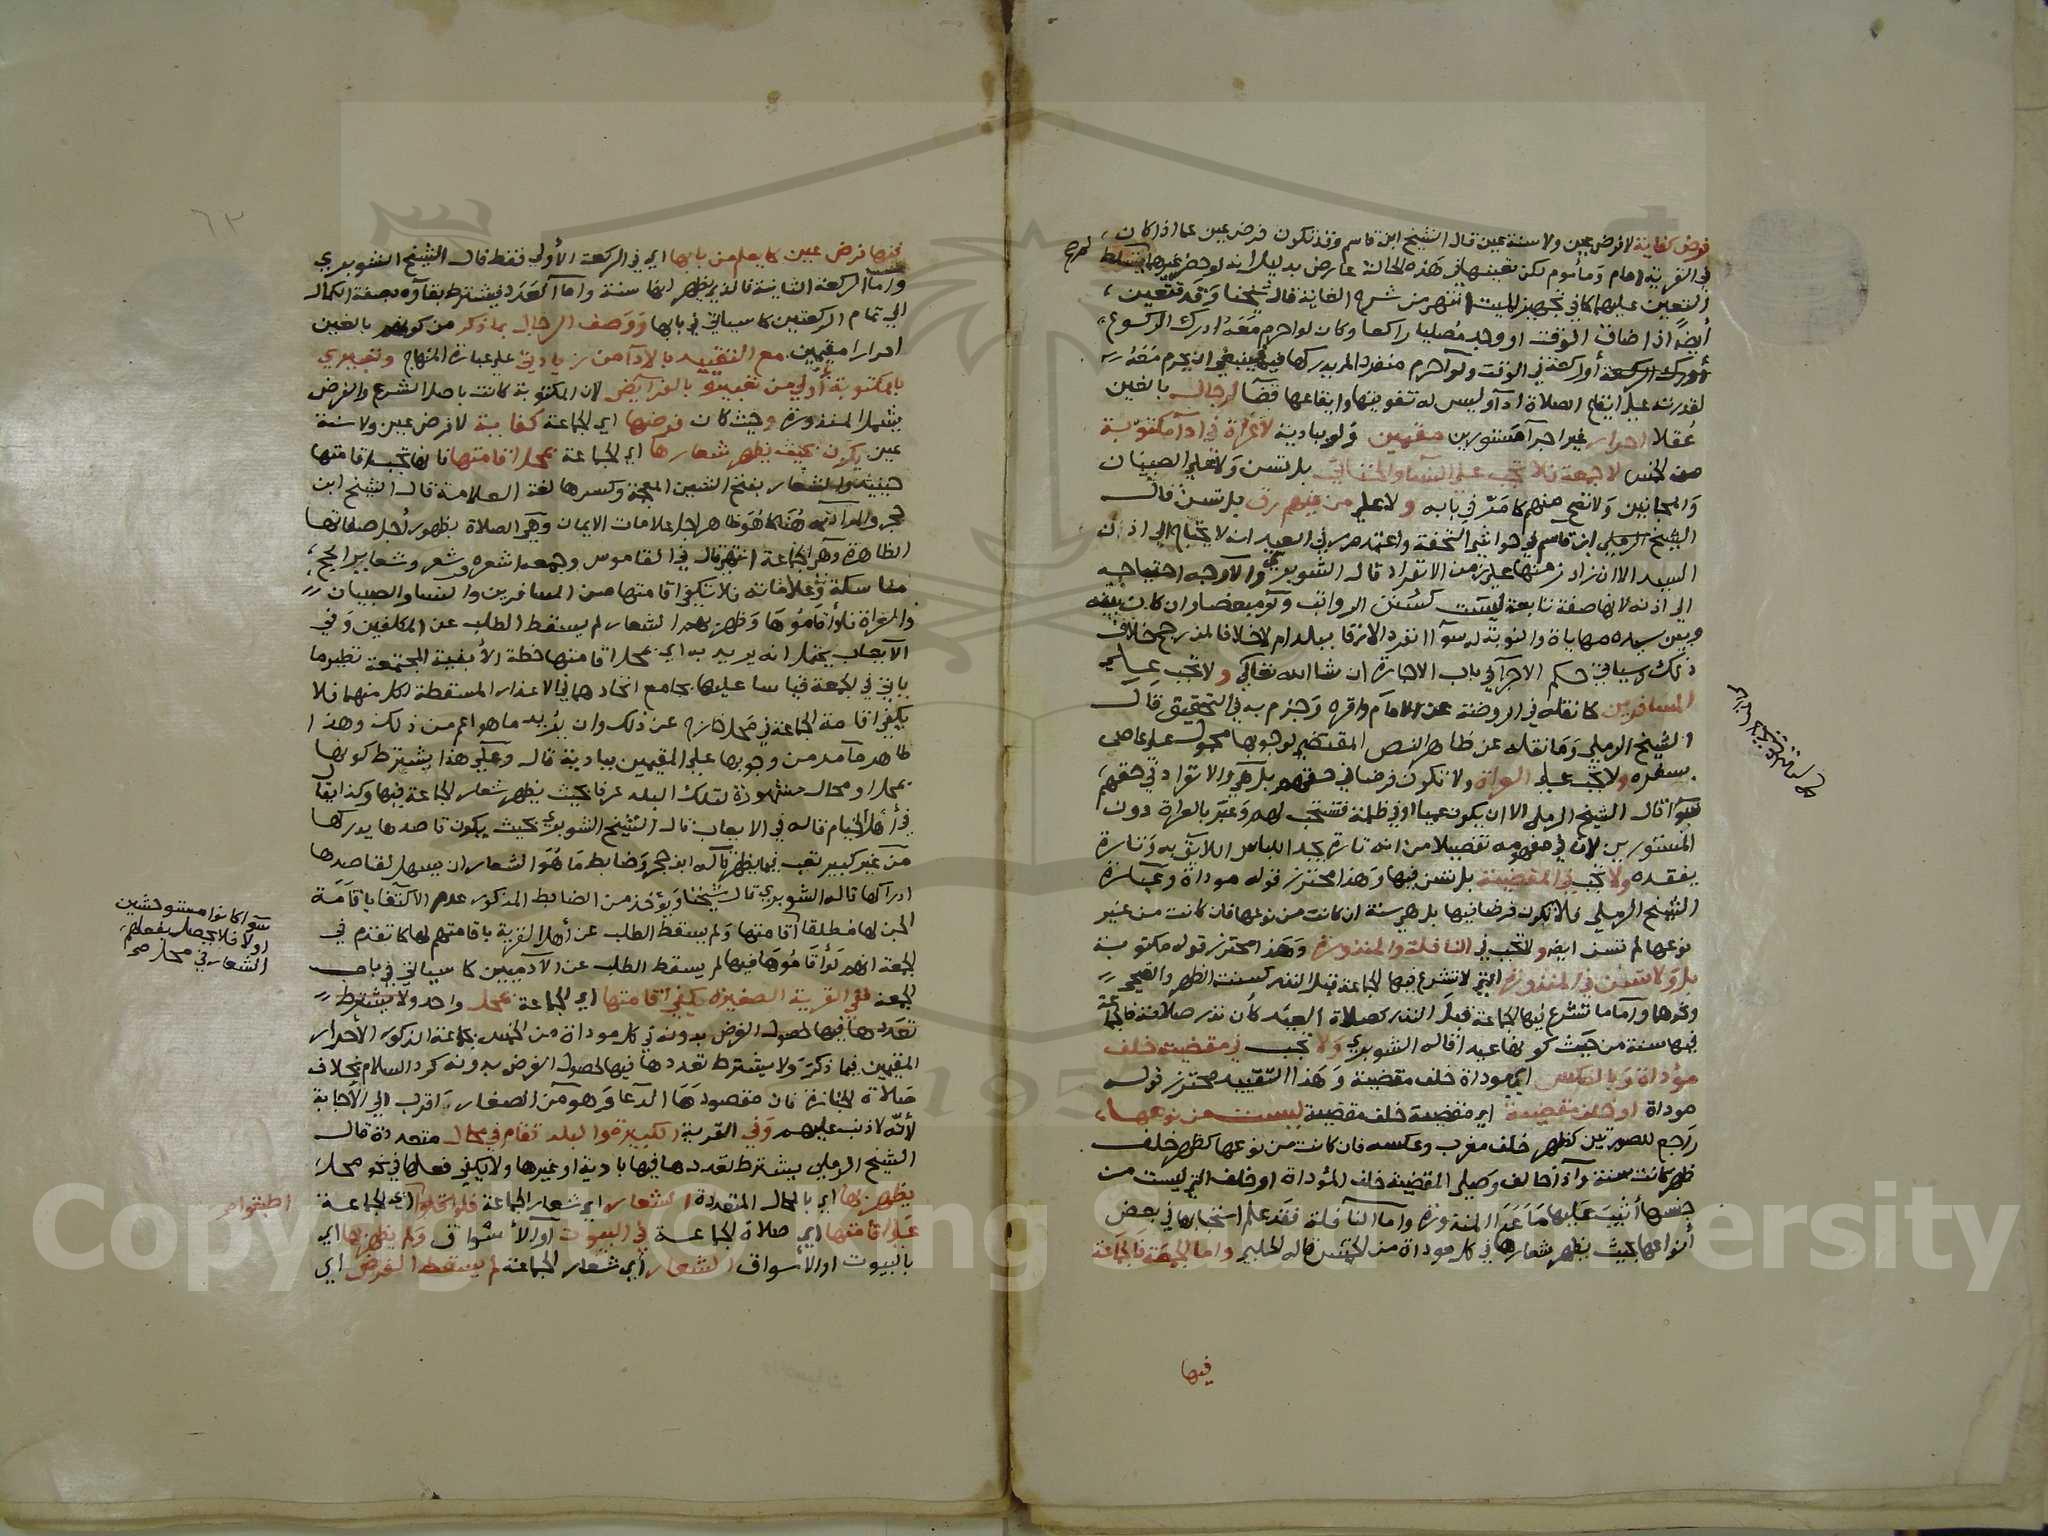 فرض كفاية لا فرض عين ولا سنة عين قال الشيخ ابن قاسم وقد تكون فرض عين كما اذا كان
في القرية امام ومأموم لكن تعينها في هذه الحالة عارض بدليل انه لو حضر غيرهما سقط
التعين عليهما كما في تجهيز الميت انتهى من شرح الغاية قال شيخنا وقد تتعين
أيضا اذا ضاق الوقت او وجد مصليا راكعا وكان لو احرم معه ادرك الركوع
أدرك ركعة في الوقت ولو احرم منفردا لم يدركها فينبغي ان يحرم معه
لقدرته على ايقاع الصلاة اداء وليس له تفويتها وايقاعها قضا لرجال بالغين
عقلا احرار غير اجرا مستورين مقيمين ولو ببادية لا عراة في ادا مكتوبة
من الخمس لا جمعة فلا تجب على النسا والخناثى بل تسن ولا على الصبيان
والمجانين ولا تصح منهم كما مر في بابه ولا على من فيهم رق بل تسن قال
الشيخ ابن قاسم في حواشي التحفة واعتمد م ر في العبيد انه لا يحتاج الى اذن
السيد الا ان زاد زمنها على زمن الانفراد قال الشوبري والاوجه احتياجه
الى اذنه لانها صفة تابعة ليست كسنن الرواتب ولو مبعضا وان كان بينه
وبين سيده مهاياة والنوبة له سوا انفرد الارقا ببلد ام لا خلافا لمن رجح خلاف
ذلك وسياتي حكم الاجرا في باب الاجارة ان شا الله تعالى ولا تجب على
المسافرين كما نقله في الروضة عن الامام واقره وجزم به في التحقيق قال
الشيخ الرملي وما نقله عن ظاهر النص المقتضي لوجوبها محمول على عاصي
بسفره ولا تجب على العراة ولا تكون فرضا في حقهم بل هي والانفراد في حقهم
سوا قال الشيخ الرملي الا ان يكون عميا او في ظلمة فتستحب لهم وعبر بالعراة دون
المستورين لان في مفهومه تفصيلا من انه تارة يجد اللباس اللايق به وتارة
يفقده ولا تجب في المقضية بل تسن فيها وهذا محترز قوله موداة وعبارة
الشيخ الرملي فلا تكون فرضا فيها بل هي سنة ان كانت من نوعها فان كانت من غير
نوعها لم تسن ايضا ولا تجب في النافلة والمنذورة وهذا محترز قوله مكتوبة
بل ولا تسن في المنذورة التي لا تشرع فيها الجماعة قبل النذر كسنة الظهر والضحى
ونحوهما واما ما تشرع فيها الجماعة قبل النذر كصلاة العيد كان نذر صلاته فالجماعة
فيها سنة من حيث كونها عيدا قاله الشوبري ولا تجب في مقضية خلف
موداة وبالعكس اي موداة خلف مقضية وهذا التقييد محترز قوله
موداة او خلف مقضية اي مقضية خلف مقضية ليست من نوعها
راجع للصورتين كظهر خلف مغرب وعكسه فان كانت من نوعها كظهر خلف
ظهر كانت سنة
جنسها أثيب عليها ما عدا المنذورة واما النافلة فقد علم استحبابها في بعض
أنواعها بحيث يظهر شعارها في كل موداة من الخمس قاله الحلبي واما الجمعة فالجماعة
فيها
فيها فرض عين كما يعلم من بابها اي في الركعة الأولى فقط قال الشيخ الشوبري
واما الركعة الثانية فالذي يظهر انها سنة واما العدد فيشترط بقاوه بصفة الكمال
الى تمام الركعتين كما سيأتي في بابها ووصف الرجال بما ذكر من كونهم بالغين
احرارا مقيمين مع التقييد بالادا من زيادتي على عبارة المنهاج وتعبيري
بالمكتوبة أولى من تعبيره بالفرايض لان المكتوبة كانت باصل الشرع والفرض
يشمل المنذورة وحيث كان فرضها اي الجماعة كفاية لا فرض عين ولا سنة
عين يكون بحيث يظهر شعارها اي الجماعة بمحل اقامتها فانها تجب اقامتها
حينئذ والشعار بفتح الشين المعجمة وكسرها لغة العلامة قال الشيخ ابن
حجر والمراد به هنا كما هو ظاهر اجل علامات الايمان وهي الصلاة بظهور أجل صفاتها
الظاهرة وهي الجماعة انتهى قال في القاموس وجمعه اشعرة وشعر وشعاير الحج
مناسكه وعلاماته فلا تكفي اقامتها من المسافرين والنسا والصبيان
والعراة فلو أقاموها وظهر بهم الشعار لم يسقط الطلب عن المكلفين وفي
الايعاب يحتمل انه يريد به اي بمحل اقامتها خطة الأبنية المجتمعة نظير ما
ياتي في الجمعة قياسا عليها بجامع اتحادهما في الاعذار المسقطة لكل منهما فلا
يكفي اقامة الجماعة في محل خارج عن ذلك وان يريد ما هو اعم من ذلك وهذا
ظاهر ما مر من وجوبها على المقيمين ببادية قال وعلى هذا يشترط كونها
بمحل او محال منسوبة لتلك البلد عرفا بحيث يظهر شعار الجماعة فيها وكذا يقال
في أهل الخيام قاله في الايعاب قال الشيخ الشوبري بحيث يكون قاصدها يدركها
من غير كبير تعب فيما يظهر قاله ابن حجر وضابط ما هو الشعار ان يسهل لقاصدها
ادراكها قاله الشوبري قال شيخنا ويؤخذ من الضابط المذكور عدم الاكتفا باقامة
الجن لها مطلقا اقامتها ولم يسقط الطلب عن أهل القرية باقامتهم لها كما تقدم في
الجمعة انهم لو أقاموها فيها لم يسقط الطلب عن الآدميين كما سيأتي في باب
الجمعة ففي القرية الصغيرة يكفي اقامتها اي الجماعة بمحل واحد ولا يشترط
تعددها فيها لحصول الفرض بدونه في كل موداة من الخمس بجماعة الذكور الأحرار
المقيمين فيما ذكر ولا يشترط تعددها فيها لحصول الفرض بدونه كرد السلام بخلاف
صلاة الجنازة فان مقصودها الدعا وهو من الصغار اقرب الى الأجابة
لأنه لا ذنب عليهم وفي القرية الكبيرة والبلد تقام في محال متعددة قال
الشيخ الرملي يشترط تعددها فيها بادية او غيرها ولا يكفي فعلها في نحو محل
يظهر بها اي بالمحال المتعددة الشعار اي شعار الجماعة فلو اي الجماعة
على اقامتها اي صلاة الجماعة في البيوت او الأسواق ولم يظهر بها اي
بالبيوت او الأسواق الشعار اي شعار الجماعة لم يسقط الفرض اي
سوا كانوا مستوحشين
او لا فلا يحصل بفعلهم
الشعار في محل صح
اطبقوا صح
٦٣